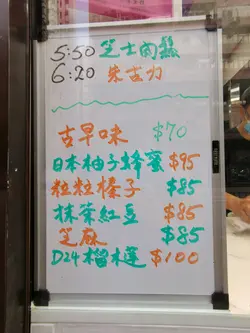 5:50 芝士肉鬆
6:20 朱古力
古早味 $70
日本柚子蜂蜜 $95
粒粒榛子 $85
抹茶紅豆 $85
芝麻 $85
D24榴槤 $100